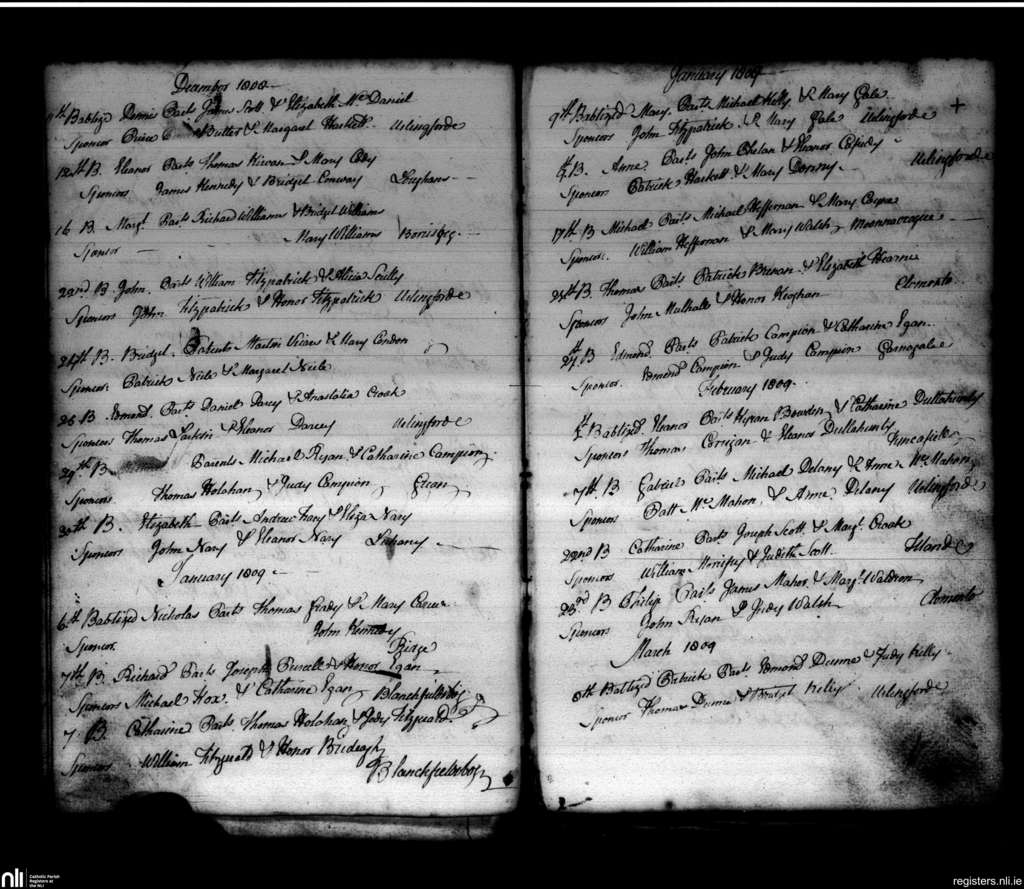 December 1808
11th Babtizd Dennis Parts James Stott & Elizabeth McDaniel
Sponsor Peirce Butler & Margaret Haskett Urlingforde
12th B. Eleanor Parts Thomas Kirwan & Mary Cody
Sponsors James Kennedy & Bridget Conway Loughans
16 B Margt Parts Richard Williams & Bridget Williams
Mary Williams
Sponsor
22nd B. John. Parts William Fitzpatrick & Alicia Scully
Sponsors John Fitzpatrick & Honor Fitzpatrick Urlingforde
24th B. Bridget. Parents Martin Vicars & Mary Condon
Sponsors Patrick Neile & Margaret Neile
26 B Edmond. Parts Daniel Darcy & Anastatia Croak
Sponsors Thomas & Eleanor Darcey Urlingforde
29th B Parents Michael Ryan & Catharine Campion
Sponsors. Thomas Holahan & Judy Campion
30th B. Elizabeth Parts Andrew Nary & Eliza Nary
Sponsors John Nary & Eleanor Nary
January 1809
6th Babtized Nicholas Parts Thomas Grady & Mary
John Kennedy
Sponsor.
7th B. Richard Parts Joseph Purcell & Honor Egan
Sponsors Michael Fox. & Catharine Egan
7. B. Catharine Parts Thomas Holahan & Judy Fitzgerald
Sponsors William Fitzgerald & Honor
January 1809
9th Babtized Mary. Parts Michael Kelly & Mary Gale
Sponsors John Fitzpatrick. & Mary Gale Urlingforde
B. Anne. Parts John Phelan & Eleanor
Sponsors Patrick Haskett & Mary Urlingforde
17th B Michael Parts Michael Heffernan & Mary
Sponsors. William Heffernan & Mary Walsh
24th B. Thomas Parts Patrick & Elizabeth Hearne
Sponsors John Mulhall & Honor Keoghan Clomonto
27th B Edmond. Parts Patrick Campion & Catharine Egan
Sponsors. Edmond Campion & Judy Campion
February 1809.
Babtized. Eleanor Parts & Catharine Dullahunty
Sponsors Thomas Corrigan & Eleanor Dullahunty
7th. B Parts Michael Delany & Anne McMahon
Sponsors Patt McMahon, & Anne Delany Urlingforde
22nd B Catharine Parts Joseph Scott & Margt Croak
Sponsors William & Judith Scott Island
23rd B Philip Parts James Maher & Margt Waldron
Sponsors John Ryan & Judy Walsh Clomonto
March 1809
8th Babtized Patrick Parts Edmond Dunne & Judy Kelly
Sponsor Thomas Dunne & Bridget Kelly Urlingforde
nli
Catholic Parish
Registers at
the NLI
registers.nli.ie